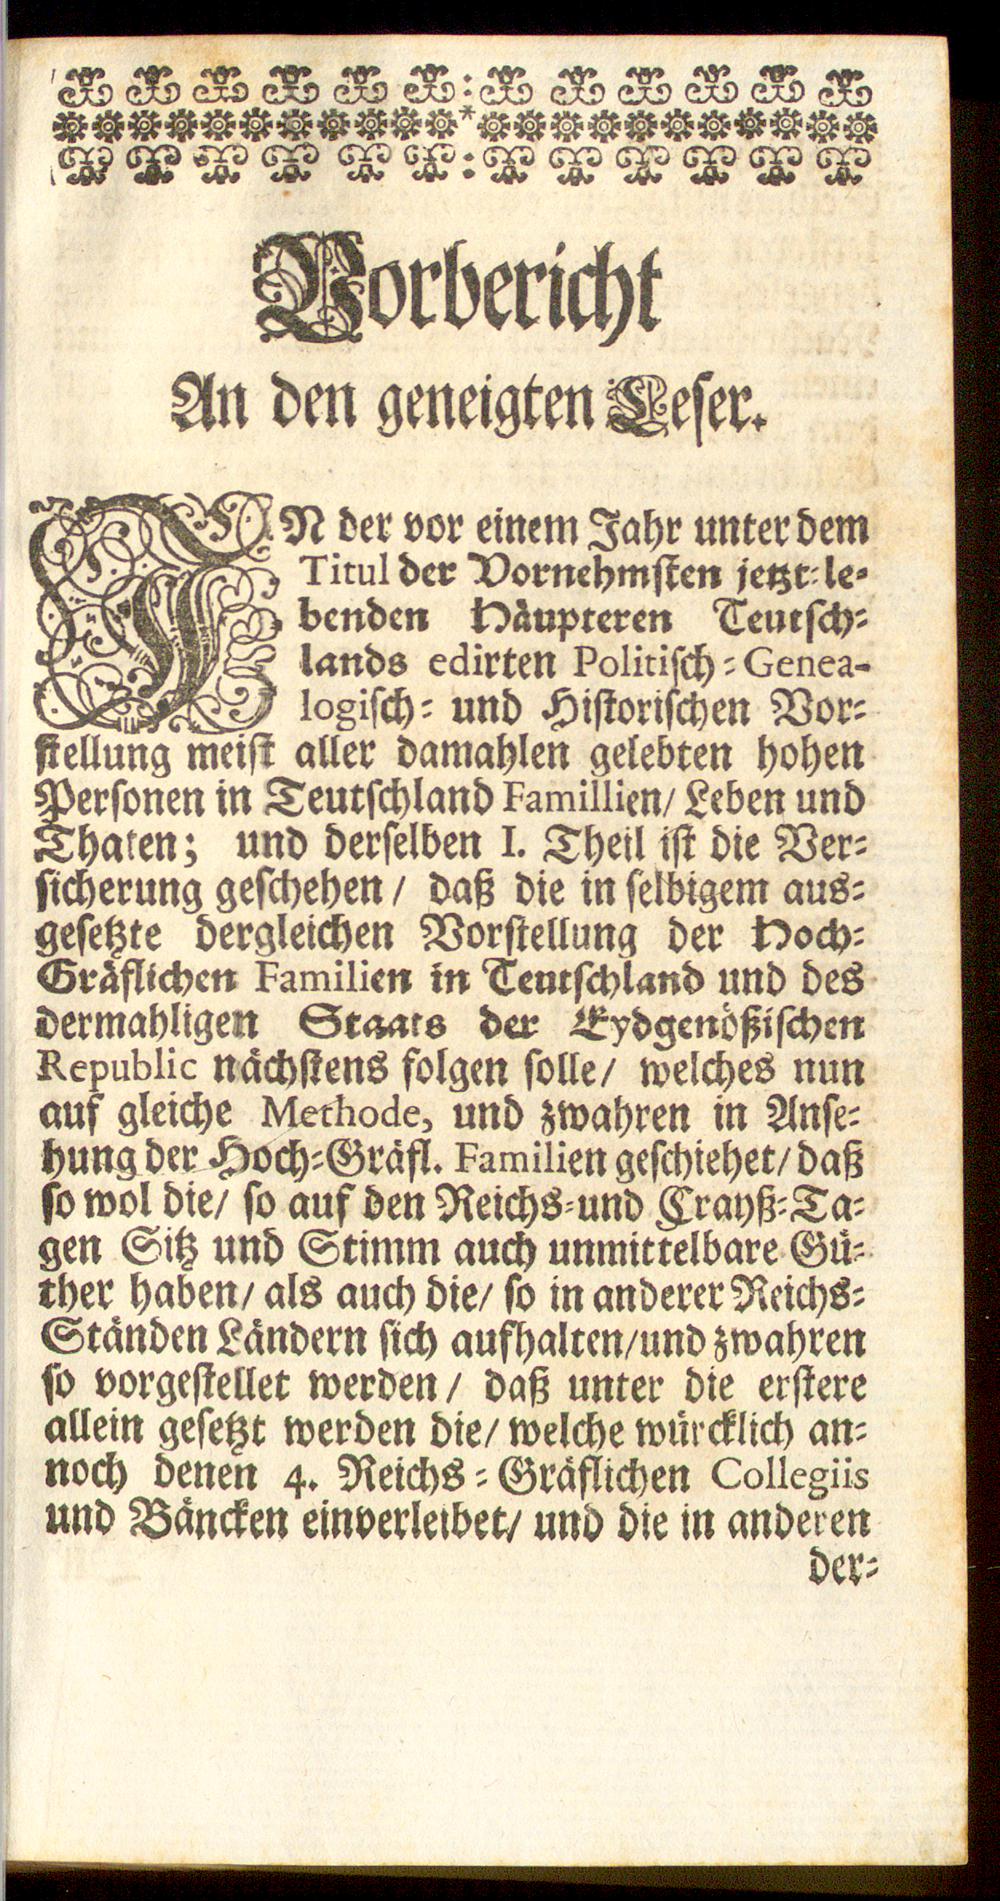 Vorbericht
An den geneigten Leser.
IN der vor einem Jahr unter dem
Titul der Vornehmsten jetzt-le-
benden Häupteren Teutsch-
lands edirten Politisch-Genea-
logisch- und Historischen Vor-
stellung meist aller damahlen gelebten hohen
Personen in Teutschland Famillien/ Leben und
Thaten; und derselben I. Theil ist die Ver-
sicherung geschehen/ daß die in selbigem aus-
gesetzte dergleichen Vorstellung der Hoch-
Gräflichen Familien in Teutschland und des
dermahligen Staats der Eydgenößischen
Republic nächstens folgen solle/ welches nun
auf gleiche Methode, und zwahren in Anse-
hung der Hoch-Gräfl. Familien geschiehet/ daß
so wol die/ so auf den Reichs-und Crayß-Ta-
gen Sitz und Stimm auch unmittelbare Gü-
ther haben/ als auch die/ so in anderer Reichs-
Ständen Ländern sich aufhalten/und zwahren
so vorgestellet werden/ daß unter die erstere
allein gesetzt werden die/ welche würcklich an-
noch denen 4. Reichs-Gräflichen Collegiis
und Bäncken einverleibet/ und die in anderen
der-